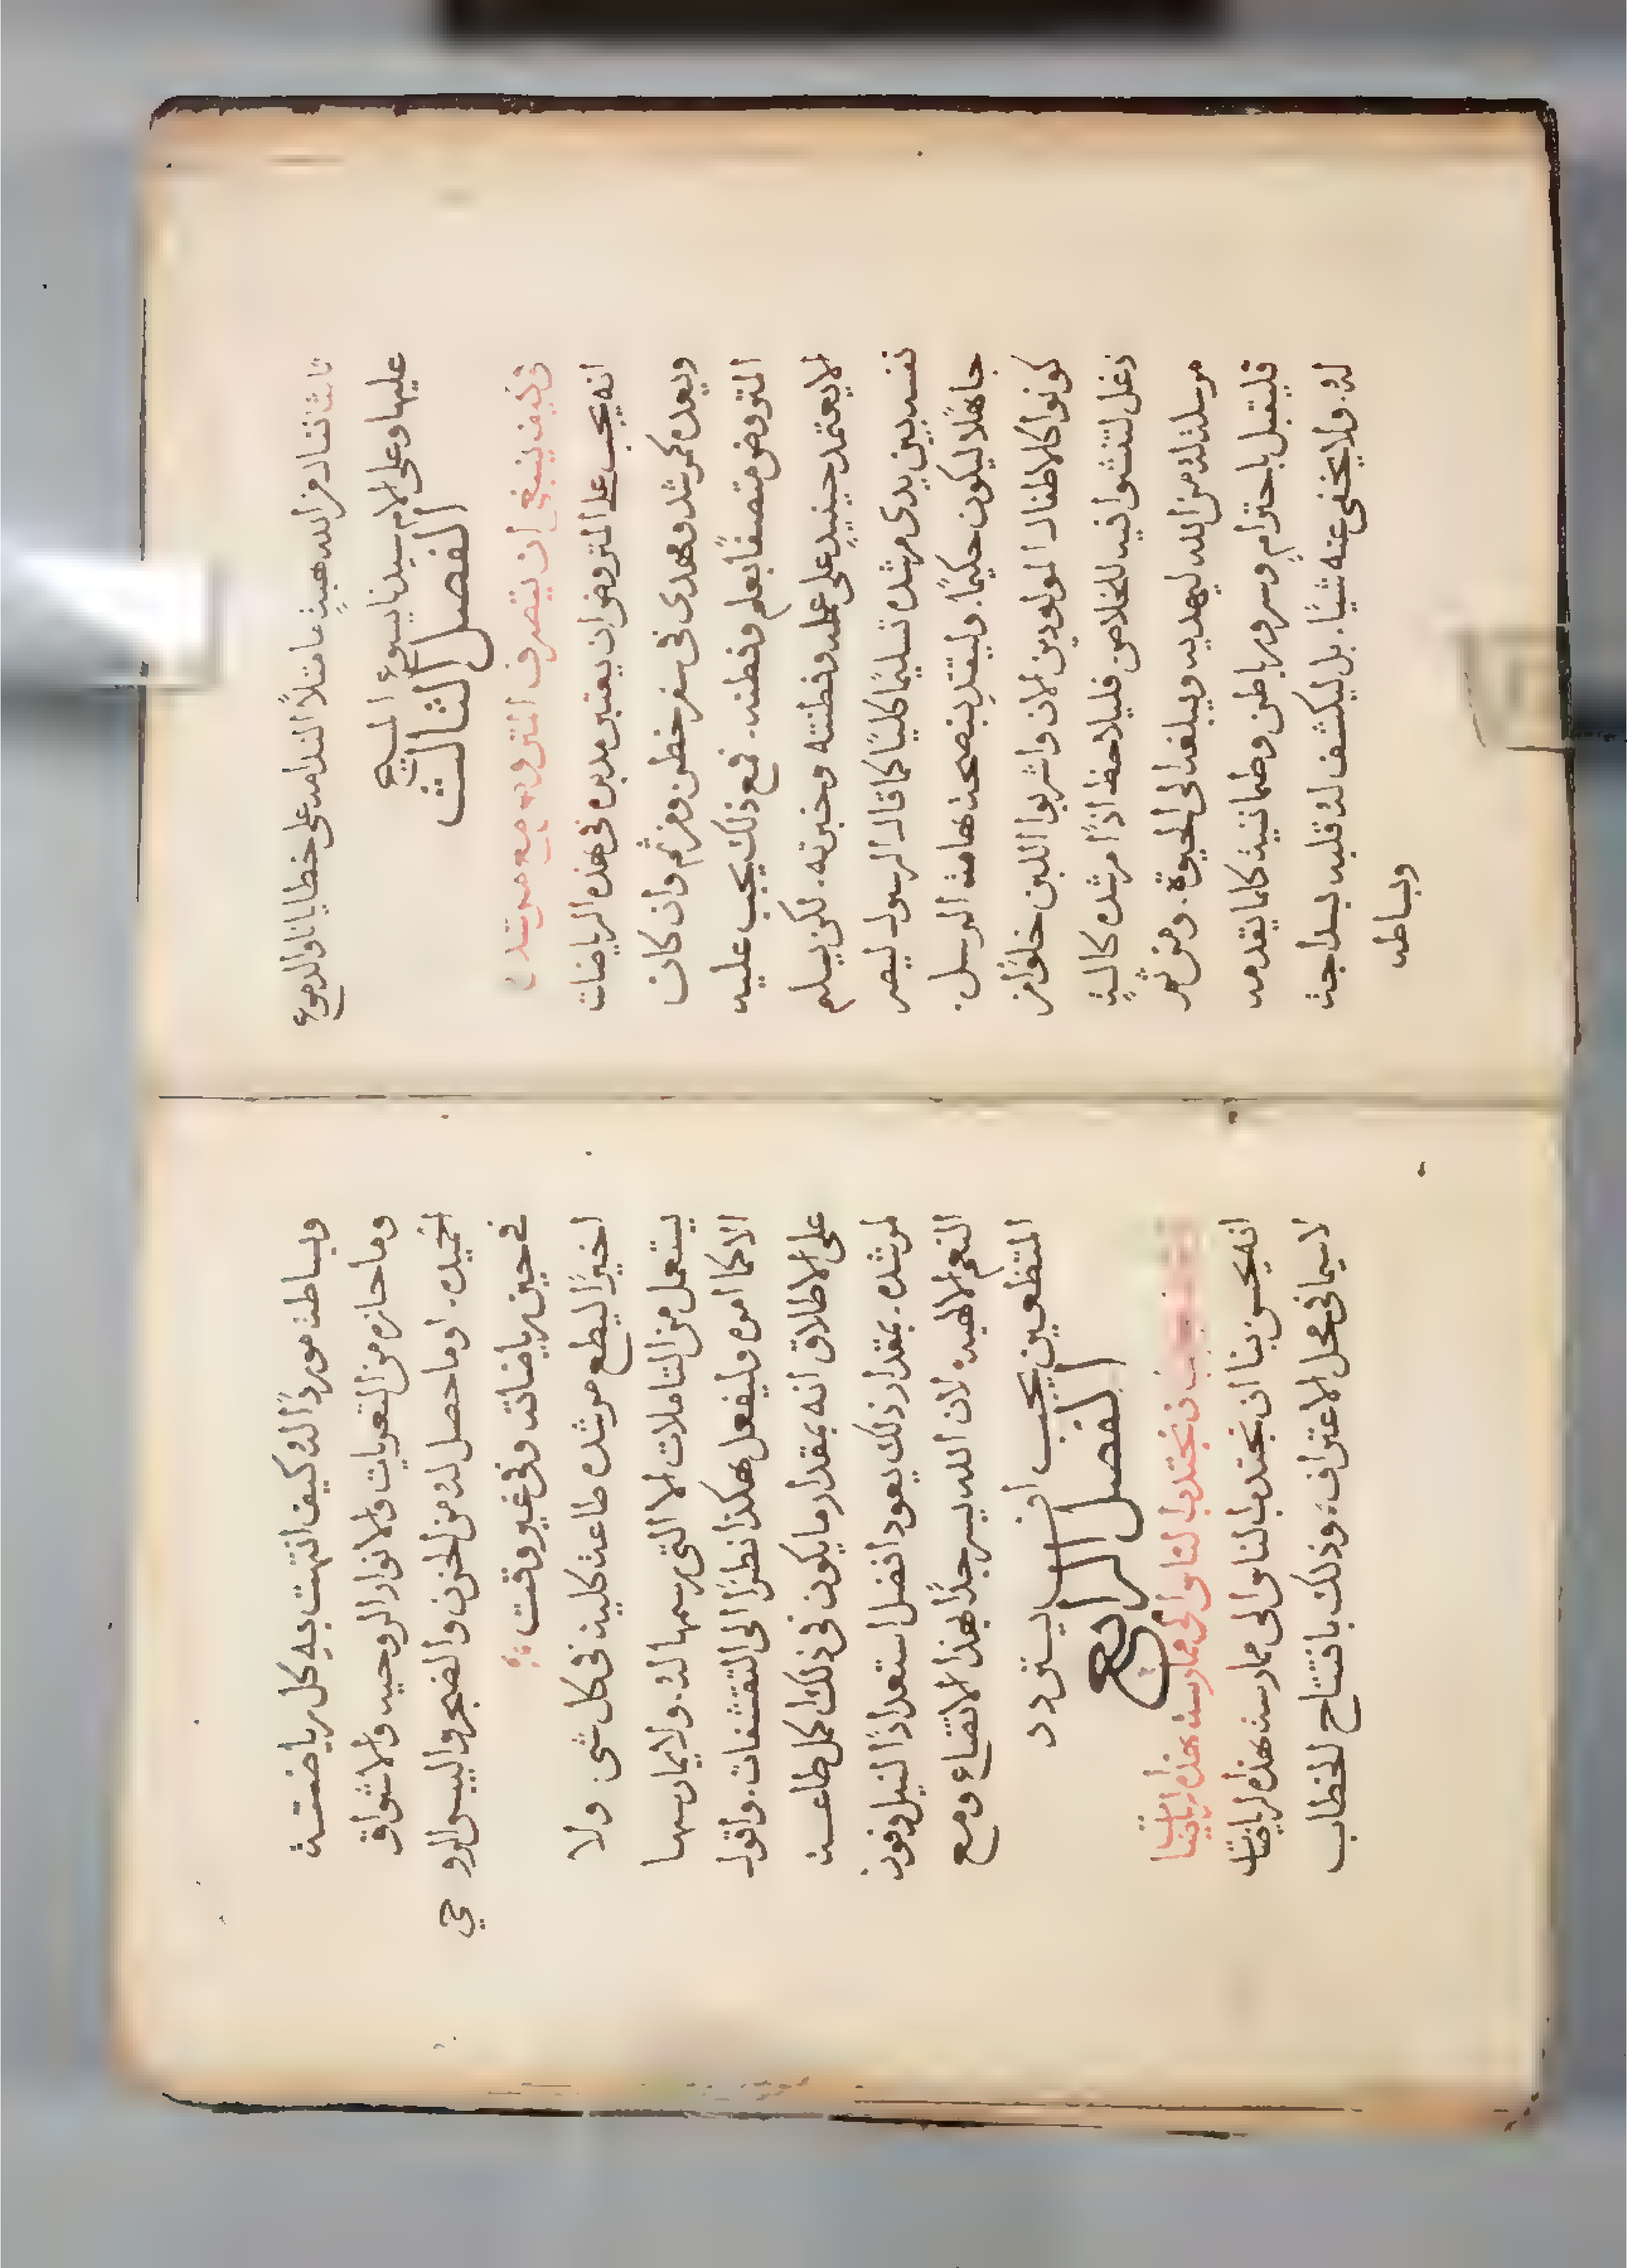 ثالثا ننال من الله هبةٍ ما متلاً الندامه على خطايانا والدموع
عليها وعلى الام سيدنا يسوع المسيح
الفصل الثالث
في كيف ينبغي ان يتصرف المتروض مع مرشده
انه يجب على المتروض ان يعتبر مدبره في هذه الرياضات
ويعده كمرشد ومهدى في سفر خطر ومن ثم وان كان
المتروض متصفًا بعلم وفطنه. فمع ذلك يجب عليه
الا يعتمد حينيذٍ على علمه وفطنته وخبرته. لكن يسلم
نفسه بين يدى مرشده تسليمًا كليًا كما قال الرسول ليصر
جاهلًا ليكون حكيمًا. وليقتدِ بنصيحة هامة الرسل.
كونوا كالاطفال المولودين الان واشربوا اللبن خلوًا من
دغل لتنشوا فيه للخلاص فليلاحظ اذًا مرشده كالةٍ
مرسلة له من الله ليهديه ويبلغه الى الحيوة. ومن ثم
فليقبل باحترامٍ وسرور باطن وطمانينة كلما يقدمه
له. ولا يخفى عنه شيًا. بل ليكشف له قلبه بسداجة
وبساطه
وبساطة موردًا له كيف انتهت به كل رياضتة
وما حازه من التعزيات والانوار الروحيه والاشواق
الحميده. او ما حصل له من الحزن والضجر واليبس الروحي
في حين رياضاته وفي غير وقت
اخيرًا ليطع مرشده طاعة كلية في كل شي ولا
يستعمل من التاملات الا التي رسمها له. ولا يمارسها
الا كما امره وليفعل هكذا نظرًا الى التقشفات. واقول
على الاطلاق انه بمقدار ما يكون في ذلك اكمل طاعة
لمرشده. بمقدار ذلك يعود افضل استعدادًا لنيل وفور
النعم الالهيه لان الله يسر جدًا بهذا الاتضاع ومع
المتضعين يجب ان يتردد
الفصل الرابع
يجب ان نجتدب لنا والى ممارسة هذه الرياضات
انه يحسن بنا ان نجتدب لنا والى ممارسة هذه الرياضات
لا سيما في محل الاعتراف وذلك بافتتاح الخطاب